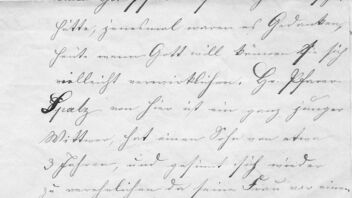 hätte, jenesmal waren es Gedanken,
heute wenn Gott will können sie sich
vielleicht verwirklichen. Hr. Pfarrer
Spatz von hier ist ein ganz junger
Wittwer, hat einen Sohn von etwa
3 Jahren, und gesinnt sich wieder
zu verehelichen da seine Frau vor einem